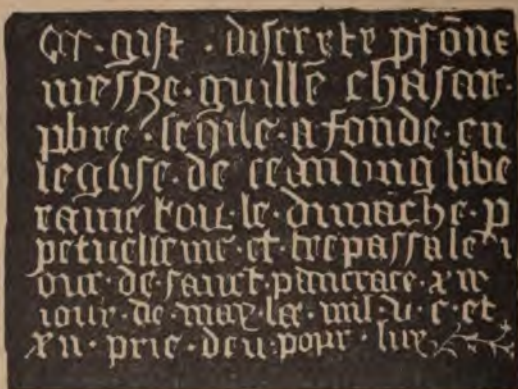 Cy · gist · discrete psōne
messRe · guillē chasant ·
pbre · leqile · a fonde · en
leglise · de ceandung libe
raine tou · le · dimāche · p
petuelleme · et trepassa le i
our · de · sainct · pancrace · xii
iour · de · may · lā · mil · v · c · et
xii · prie · deu · pour · luy